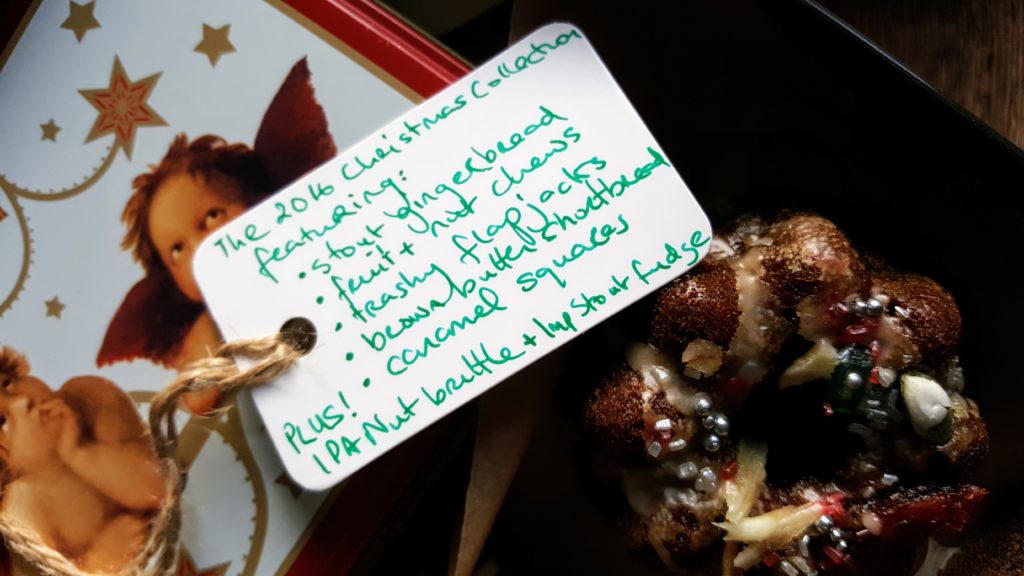 The 2016 Christmas Collection
featuring:
• stout gingerbread
• fruit + nut chews
• trashy flapjacks
• brown butter shortbread
• caramel squares
PLUS!
IPA Nut brittle + Imp Stout fudge